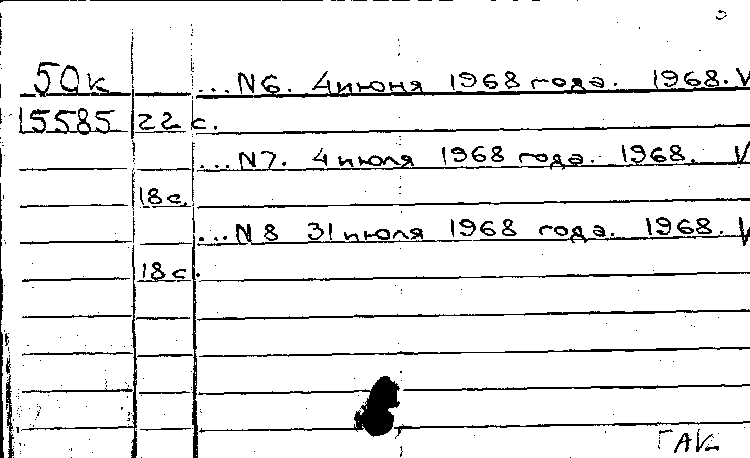 50к ...N6. 4 июня 1968 года. 1968. V
15585 22 с.
...N7. 4 июля 1968 года. 1968. V
18с.
...N8 31 июля 1968 года. 1968. V
18с.